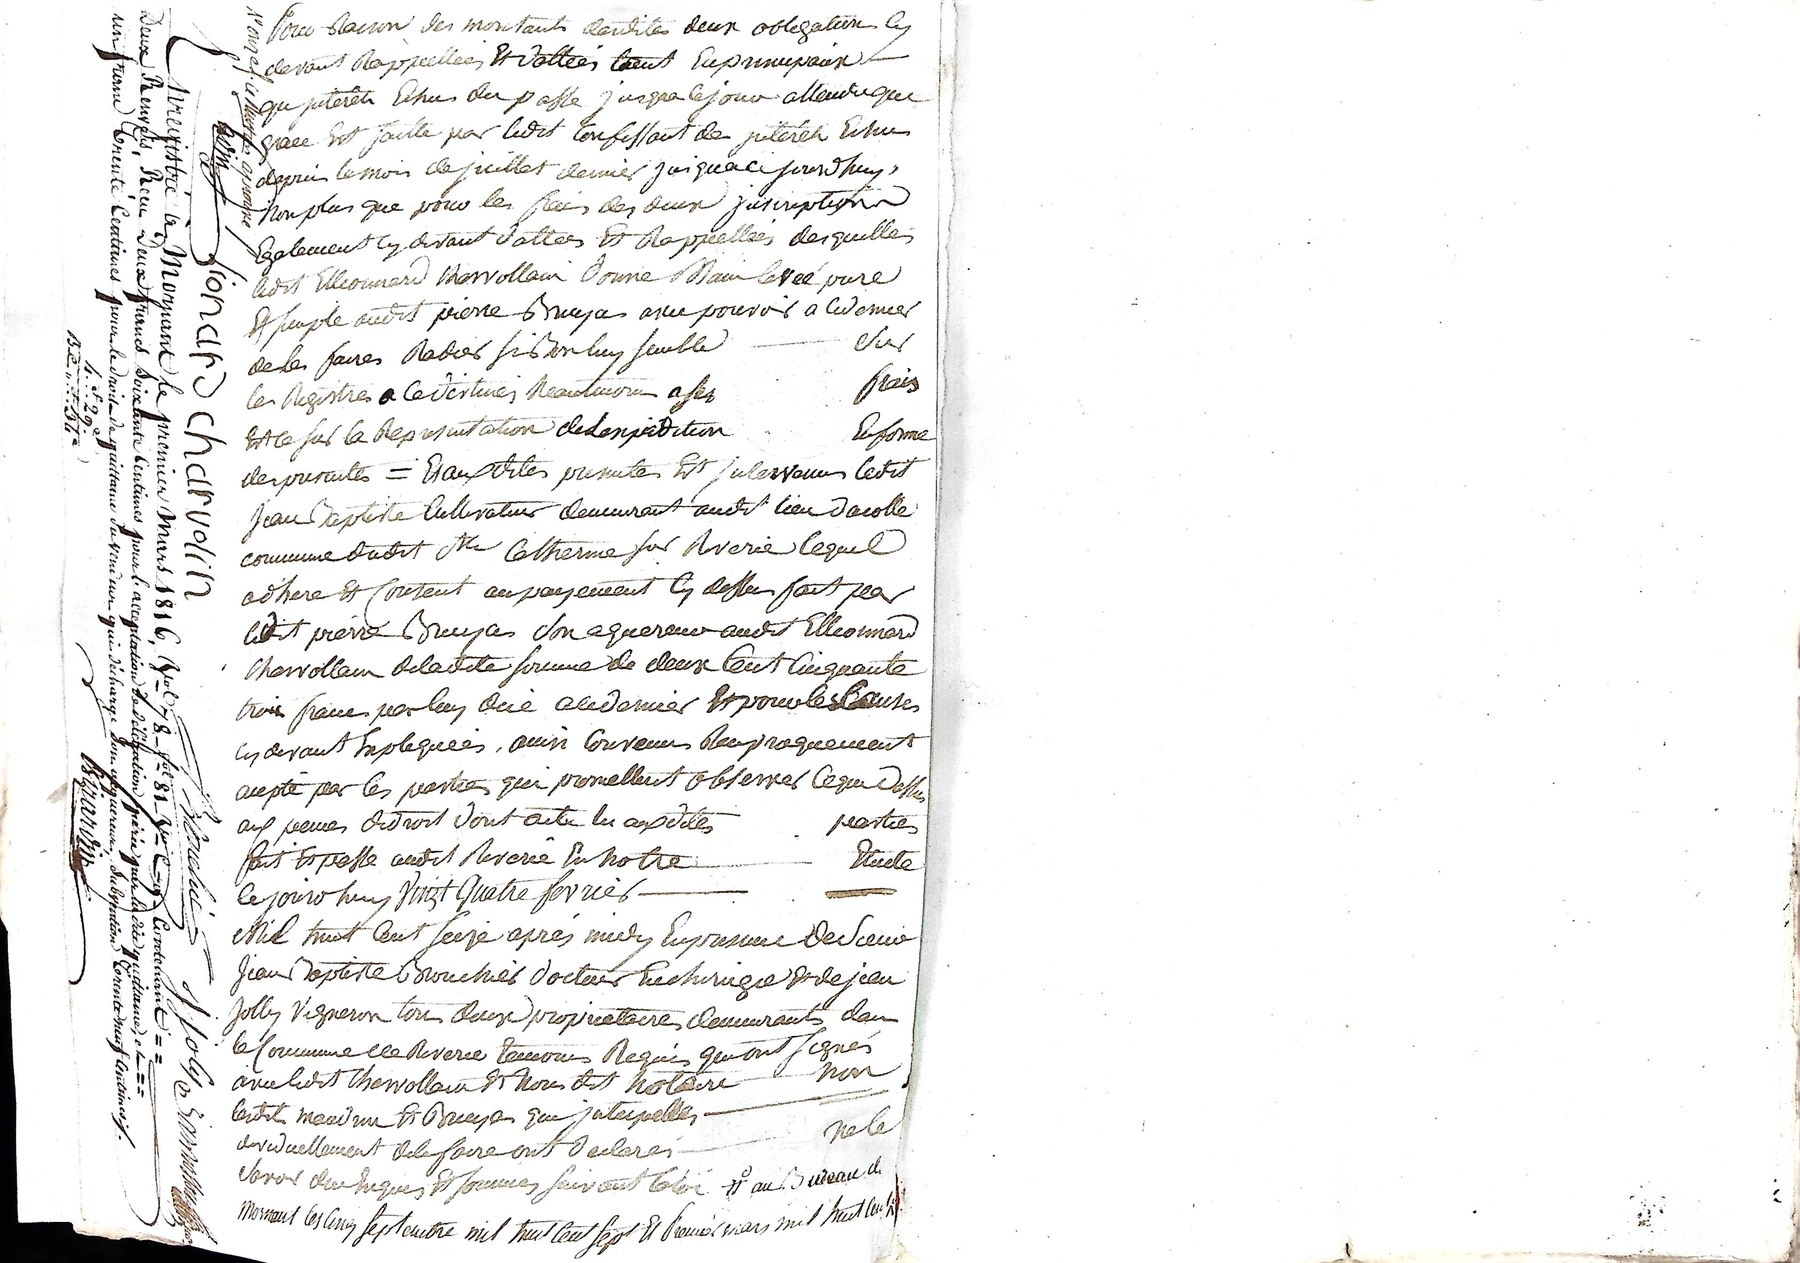 Pour Raison des montants desdites deux obligations cy
devant Rappellées Et dattées tant En principaux
que jnterêts Echus du passé jusqua ce jour attendu que
grace Est faitte par ledit confessant des jnterêts Echus
depuis le mois de juillet dernier jusqua ce jourdhuy,
non plus que pour les frais des deux jnscriptions
Egalement cy devant dattées Et Rappellées desquelles
ledit Elleonnard Charvollain donne Main levée pure
Et simple audit pierre Bruyas avec pouvoir a ce dernier
de les faires Radier si Bon luy semble sur
les Registres a ce destinés Neantmoins a ses frais
Et ce sur la Representation de l'expédition En forme
des presentes = Et auxdites presentes Est jntervenu ledit
jean Baptiste Cultivateur demeurant audit lieu dacolle
commune dudit Ste Catherine sur Riverie lequel
adhere Et Consent au payement Cy dessus fait par
ledit pierre Bruyas son aquereur audit Elleonnard
Charvollain de ladite somme de deux Cent Cinquante
trois francs par luy due a ce dernier Et pour les Causes
cy devant Expliquées, ainsi Convenu Reciproquement
accepté par les parties qui promettent observer Ce que dessus
aux peines de droit dont acte lu auxdites parties
fait Et passé audit Riverie En notre Etude
le jourdhuy Vingt Quatre fevrier
Mil huit Cent seize après midy En presence de Sieur
Jean Baptiste Brouchier docteur En chirurgie Et de jean
jolly Vigneron tous deux propriétaires demeurants dans
la Commune de Riverie temoins Requis qui ont signés
avec ledit Charvollain Et Nous dit notaire non
lesdits Et Bruyas qui jnterpellés
de le faire ont declarés ne le
savoir de ce Enquis Et sommés suivant la loi Et au Bureau de
Mornant les Cinq septembre mil huit Cent sept Et Premier mars mil huit Cent
jonard charvolin
Brouchier
J Joly
Enregistré à Mornant le premier Mars 1816, Vol. 78 fo. 81 Vo. Contenant
Deux Renvois, Reçu deux francs soixante Centimes pour l'acceptation de délégation
un franc Trente Centimes pour le droit de quittance du vendeur qui décharge son acquereur, Subvention Trente neuf Centimes.